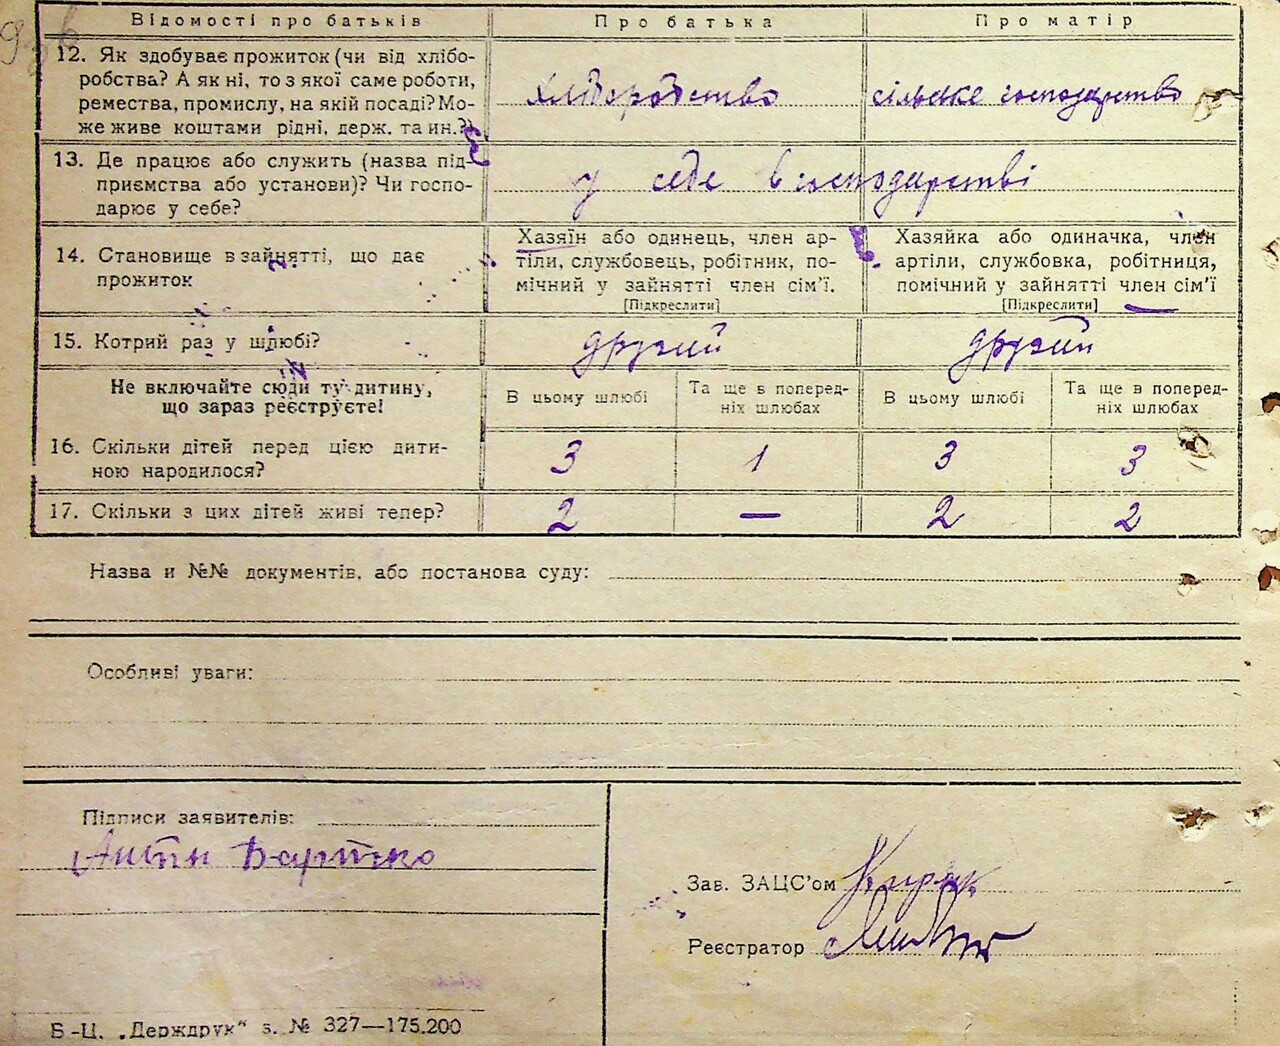 Відомості про батьків Про батька Про матір
12. Як здобуває прожиток (чи від хлібо-
робства? А як ні, то з якої саме роботи,
ремества, промислу, на якій посаді? Мо-
же живе коштами рідні, держ. та ин.?)
хліборобство сільське господарство
13. Де працює або служить (назва під-
приємства або установи)? Чи госпо-
дарює у себе?
у себе в господарстві
14. Становище в зайнятті, що дає
прожиток
Хазяїн або одинець, член ар-
тіли, службовець, робітник, по-
мічний у зайнятті член сім'ї.
[Підкреслити]
Хазяйка або одиначка, член
артіли, службовка, робітниця,
помічний у зайнятті член сім'ї
[Підкреслити]
15. Котрий раз у шлюбі? другий другий
Не включайте сюди ту дитину,
що зараз реєструєте!
В цьому шлюбі
Та ще в поперед-
ніх шлюбах
В цьому шлюбі
Та ще в поперед-
ніх шлюбах
16. Скільки дітей перед цією дити-
ною народилося?
3 1 3 3
17. Скільки з цих дітей живі тепер? 2 — 2 2
Назва и №№ документів, або постанова суду:
Особливі уваги:
Підписи заявителів:
Антін
Зав. ЗАЦС'ом
Реєстратор
Б-Ц. „Держдрук" з. № 327—175.200